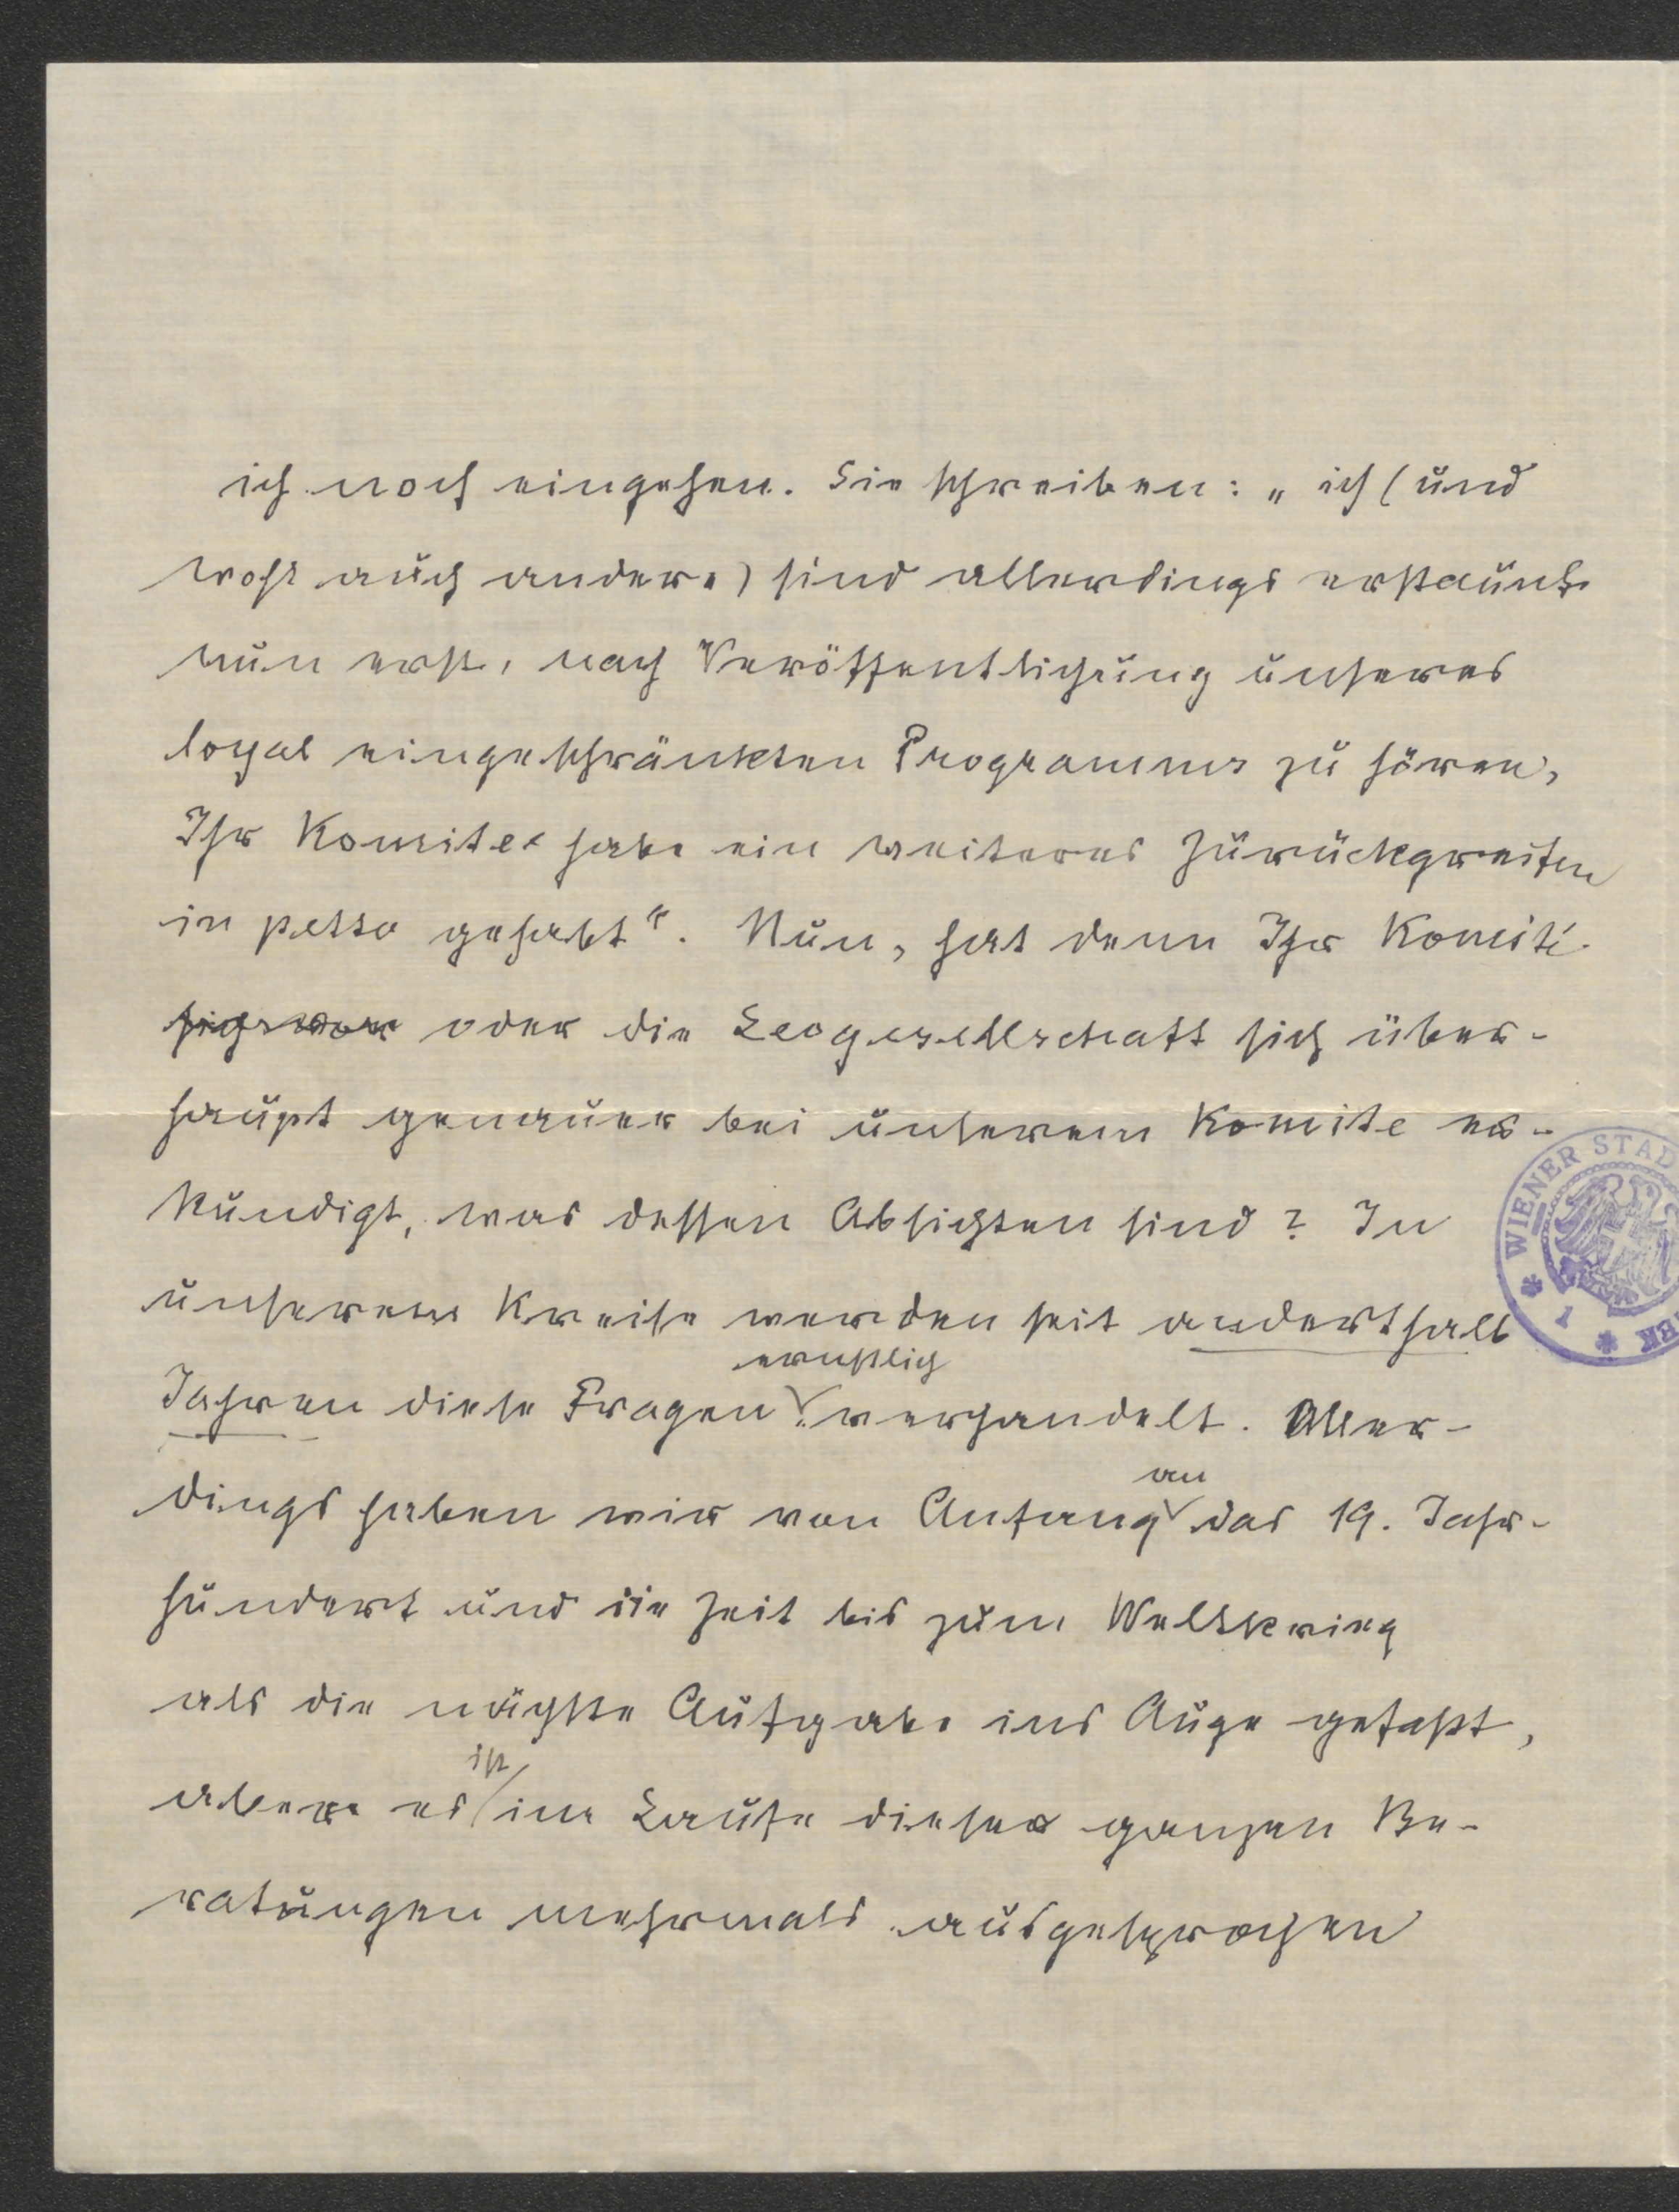 ich noch eingehen. Sie schreiben: „ich (und
wohl auch andere) sind allerdings erstaunt
nun erst, nach Veröffentlichung unseres
loyal eingeschränkten Programms zu hören,
Ihr Komitee habe ein weiteres Zurückgreifen
in petto gehabt“. Nun, hat denn Ihr Komité
oder die Leogesellschaft sich über-
haupt genauer bei unserem Komite er-
kundigt, was dessen Absichten sind? In
unserem Kreise werden seit anderthalb
ernstlich
Jahren diese Fragen verhandelt. Aller-
an
dings haben wir von Anfang das 19. Jahr-
hundert und die Zeit bis zum Weltkrieg
als die nächste Aufgabe ins Auge gefaßt,
ist
aber es im Laufe dieser ganzen Be-
ratungen mehrmals ausgesprochen
WIENER STAD
1
EK